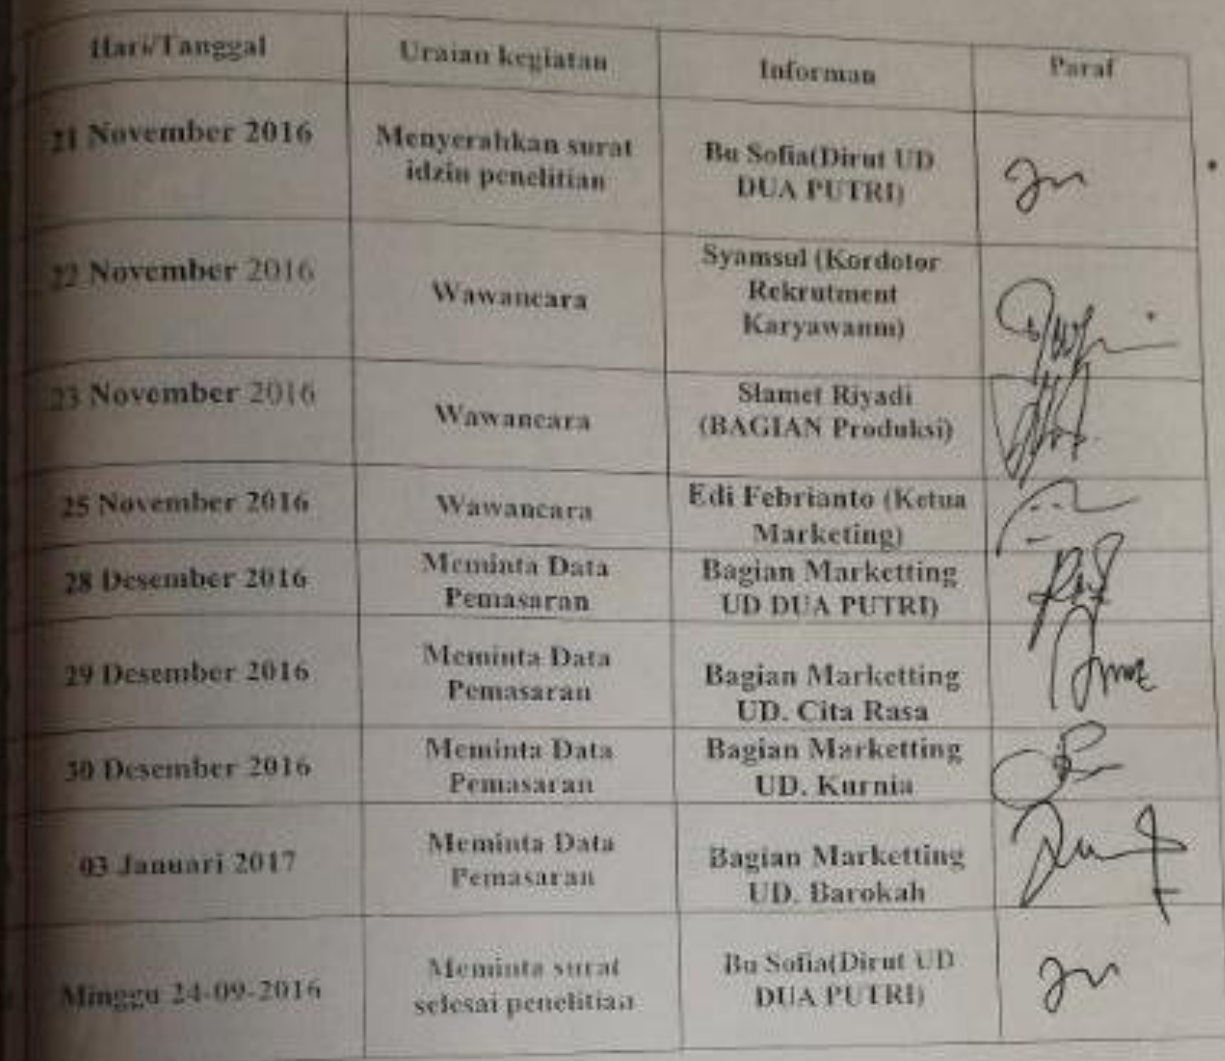 Hari/Tanggal Uraian kegiatan Informan Paraf
21 November 2016
Menyerahkan surat
idzin penelitian
Bu Sofia(Dirut UD
DUA PUTRI)
22 November 2016
Wawancara
Syamsul (Kordotor
Rekrutment
Karyawanm)
23 November 2016
Wawancara
Slamet Riyadi
(BAGIAN Produksi)
25 November 2016
Wawancara
Edi Febrianto (Ketua
Marketing)
28 Desember 2016
Meminta Data
Pemasaran
Bagian Marketting
UD DUA PUTRI)
29 Desember 2016
Meminta Data
Pemasaran
Bagian Marketting
UD. Cita Rasa
30 Desember 2016
Meminta Data
Pemasaran
Bagian Marketting
UD. Kurnia
03 Januari 2017
Meminta Data
Pemasaran
Bagian Marketting
UD. Barokah
Minggu 24-09-2016
Meminta surat
selesai penelitian
Bu Sofia(Dirut UD
DUA PUTRI)